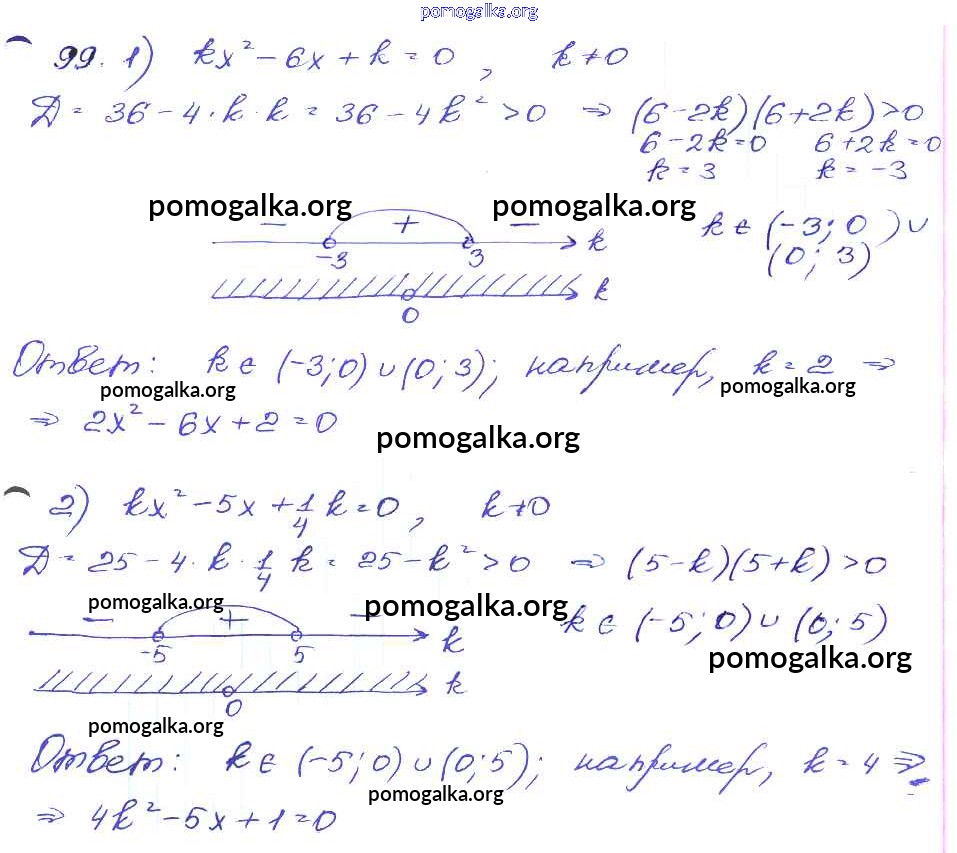 pomogalka.org
99. 1) kx² - 6x + k = 0, k ≠ 0
D = 36 - 4 · k · k = 36 - 4k² > 0 ⇒ (6 - 2k)(6 + 2k) > 0
6 - 2k = 0 6 + 2k = 0
k = 3 k = -3
pomogalka.org pomogalka.org
− + − k
-3 3
k ∈ (-3; 0) ∪
(0; 3)
k
0
Ответ: k ∈ (-3; 0) ∪ (0; 3); например, k = 2 ⇒
pomogalka.org pomogalka.org
⇒ 2x² - 6x + 2 = 0
pomogalka.org
2) kx² - 5x + 1/4 k = 0, k ≠ 0
D = 25 - 4 · k · 1/4 k = 25 - k² > 0 ⇒ (5 - k)(5 + k) > 0
pomogalka.org pomogalka.org
− + − k
-5 5
k ∈ (-5; 0) ∪ (0; 5)
pomogalka.org
k
0
pomogalka.org
Ответ: k ∈ (-5; 0) ∪ (0; 5); например, k = 4 ⇒
pomogalka.org
⇒ 4k² - 5x + 1 = 0